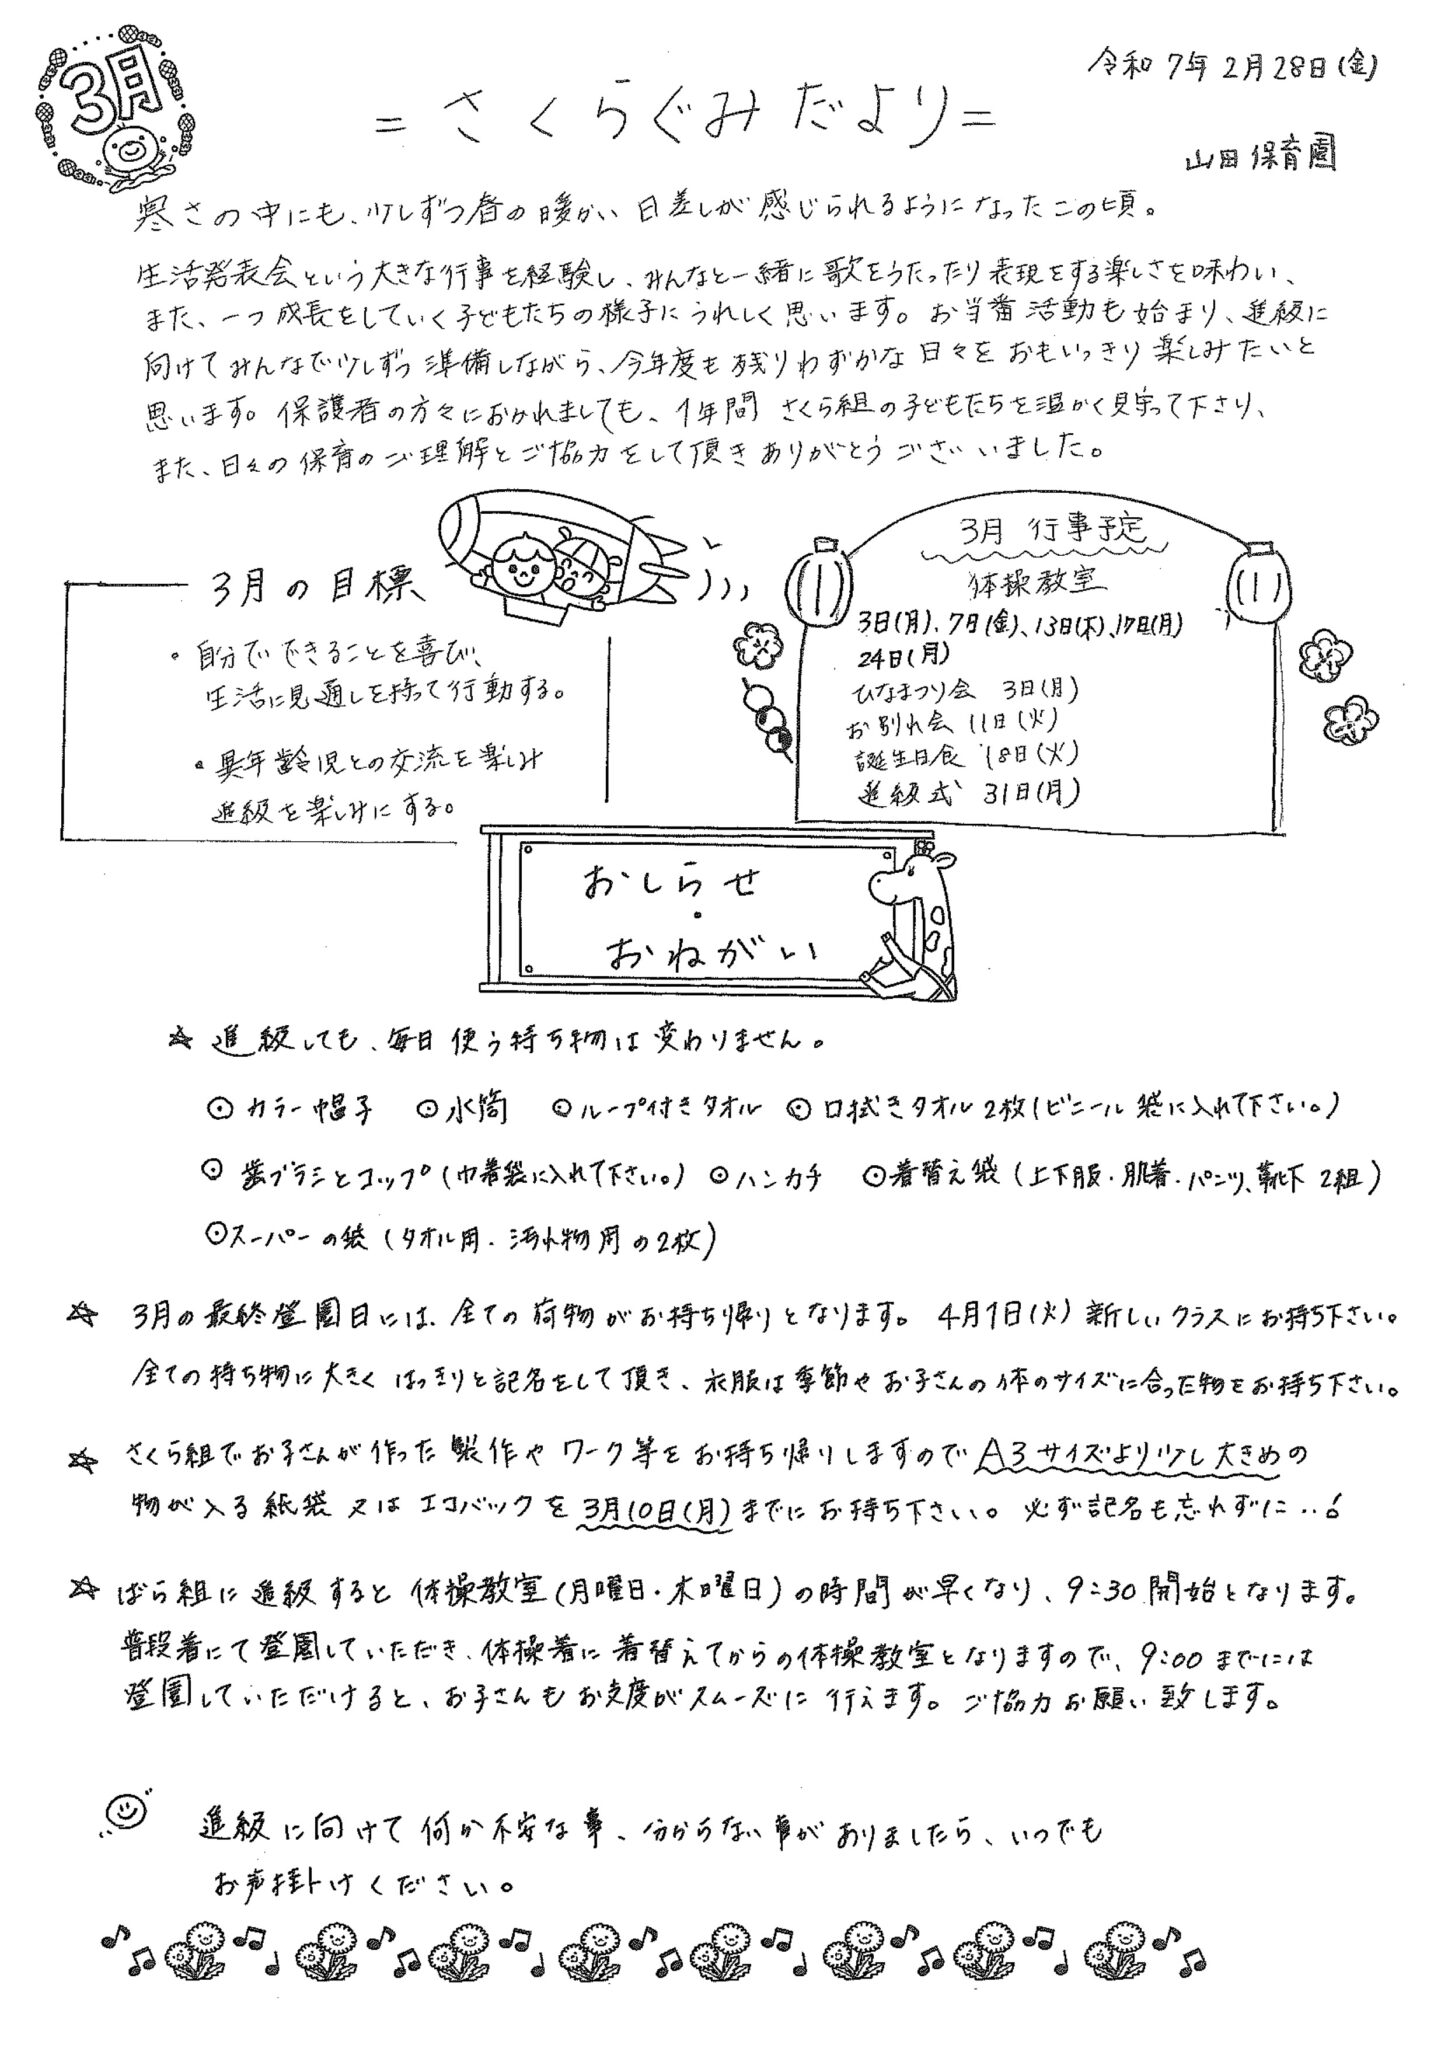 3月
令和7年2月28日(金)
=さくらぐみだより=
山田保育園
寒さの中にも、少しずつ春の暖かい日差しが感じられるようになったこの頃。
生活発表会という大きな行事を経験し、みんなと一緒に歌をうたったり表現をする楽しさを味わい、
また、一つ成長をしていく子どもたちの様子にうれしく思います。お当番活動も始まり、進級に
向けてみんなで少しずつ準備しながら、今年度も残りわずかな日々をおもいっきり楽しみたいと
思います。保護者の方々におかれましても、1年間さくら組の子どもたちを温かく見守って下さり、
また、日々の保育のご理解とご協力をして頂きありがとうございました。
3月の目標
・自分でできることを喜び、
生活に見通しを持って行動する。
・異年齢児との交流を楽しみ
進級を楽しみにする。
3月行事予定
体操教室
3日(月)、7日(金)、13日(木)、17日(月)
24日(月)
ひなまつり会 3日(月)
お別れ会 11日(火)
誕生日食 18日(火)
進級式 31日(月)
おしらせ
・
おねがい
☆ 進級しても、毎日使う持ち物は変わりません。
⊙ カラー帽子 ⊙水筒 ⊙ループ付きタオル ⊙口拭きタオル2枚(ビニール袋に入れて下さい。)
⊙ 歯ブラシとコップ(巾着袋に入れて下さい。) ⊙ハンカチ ⊙着替え袋(上下服・肌着・パンツ、靴下2組)
⊙スーパーの袋(タオル用・汚れ物用の2枚)
☆ 3月の最終登園日には、全ての荷物がお持ち帰りとなります。4月1日(火)新しいクラスにお持ち下さい。
全ての持ち物に大きくはっきりと記名をして頂き、衣服は季節やお子さんの体のサイズに合った物をお持ち下さい。
☆ さくら組でお子さんが作った製作やワーク等をお持ち帰りしますのでA3サイズより少し大きめの
物が入る紙袋又はエコバックを3月10日(月)までにお持ち下さい。必ず記名も忘れずに‥!
☆ ばら組に進級すると体操教室(月曜日・木曜日)の時間が早くなり、9:30開始となります。
普段着にて登園していただき、体操着に着替えてからの体操教室となりますので、9:00までには
登園していただけると、お子さんもお支度がスムーズに行えます。ご協力お願い致します。
進級に向けて何か不安な事、分からない事がありましたら、いつでも
お声掛けください。